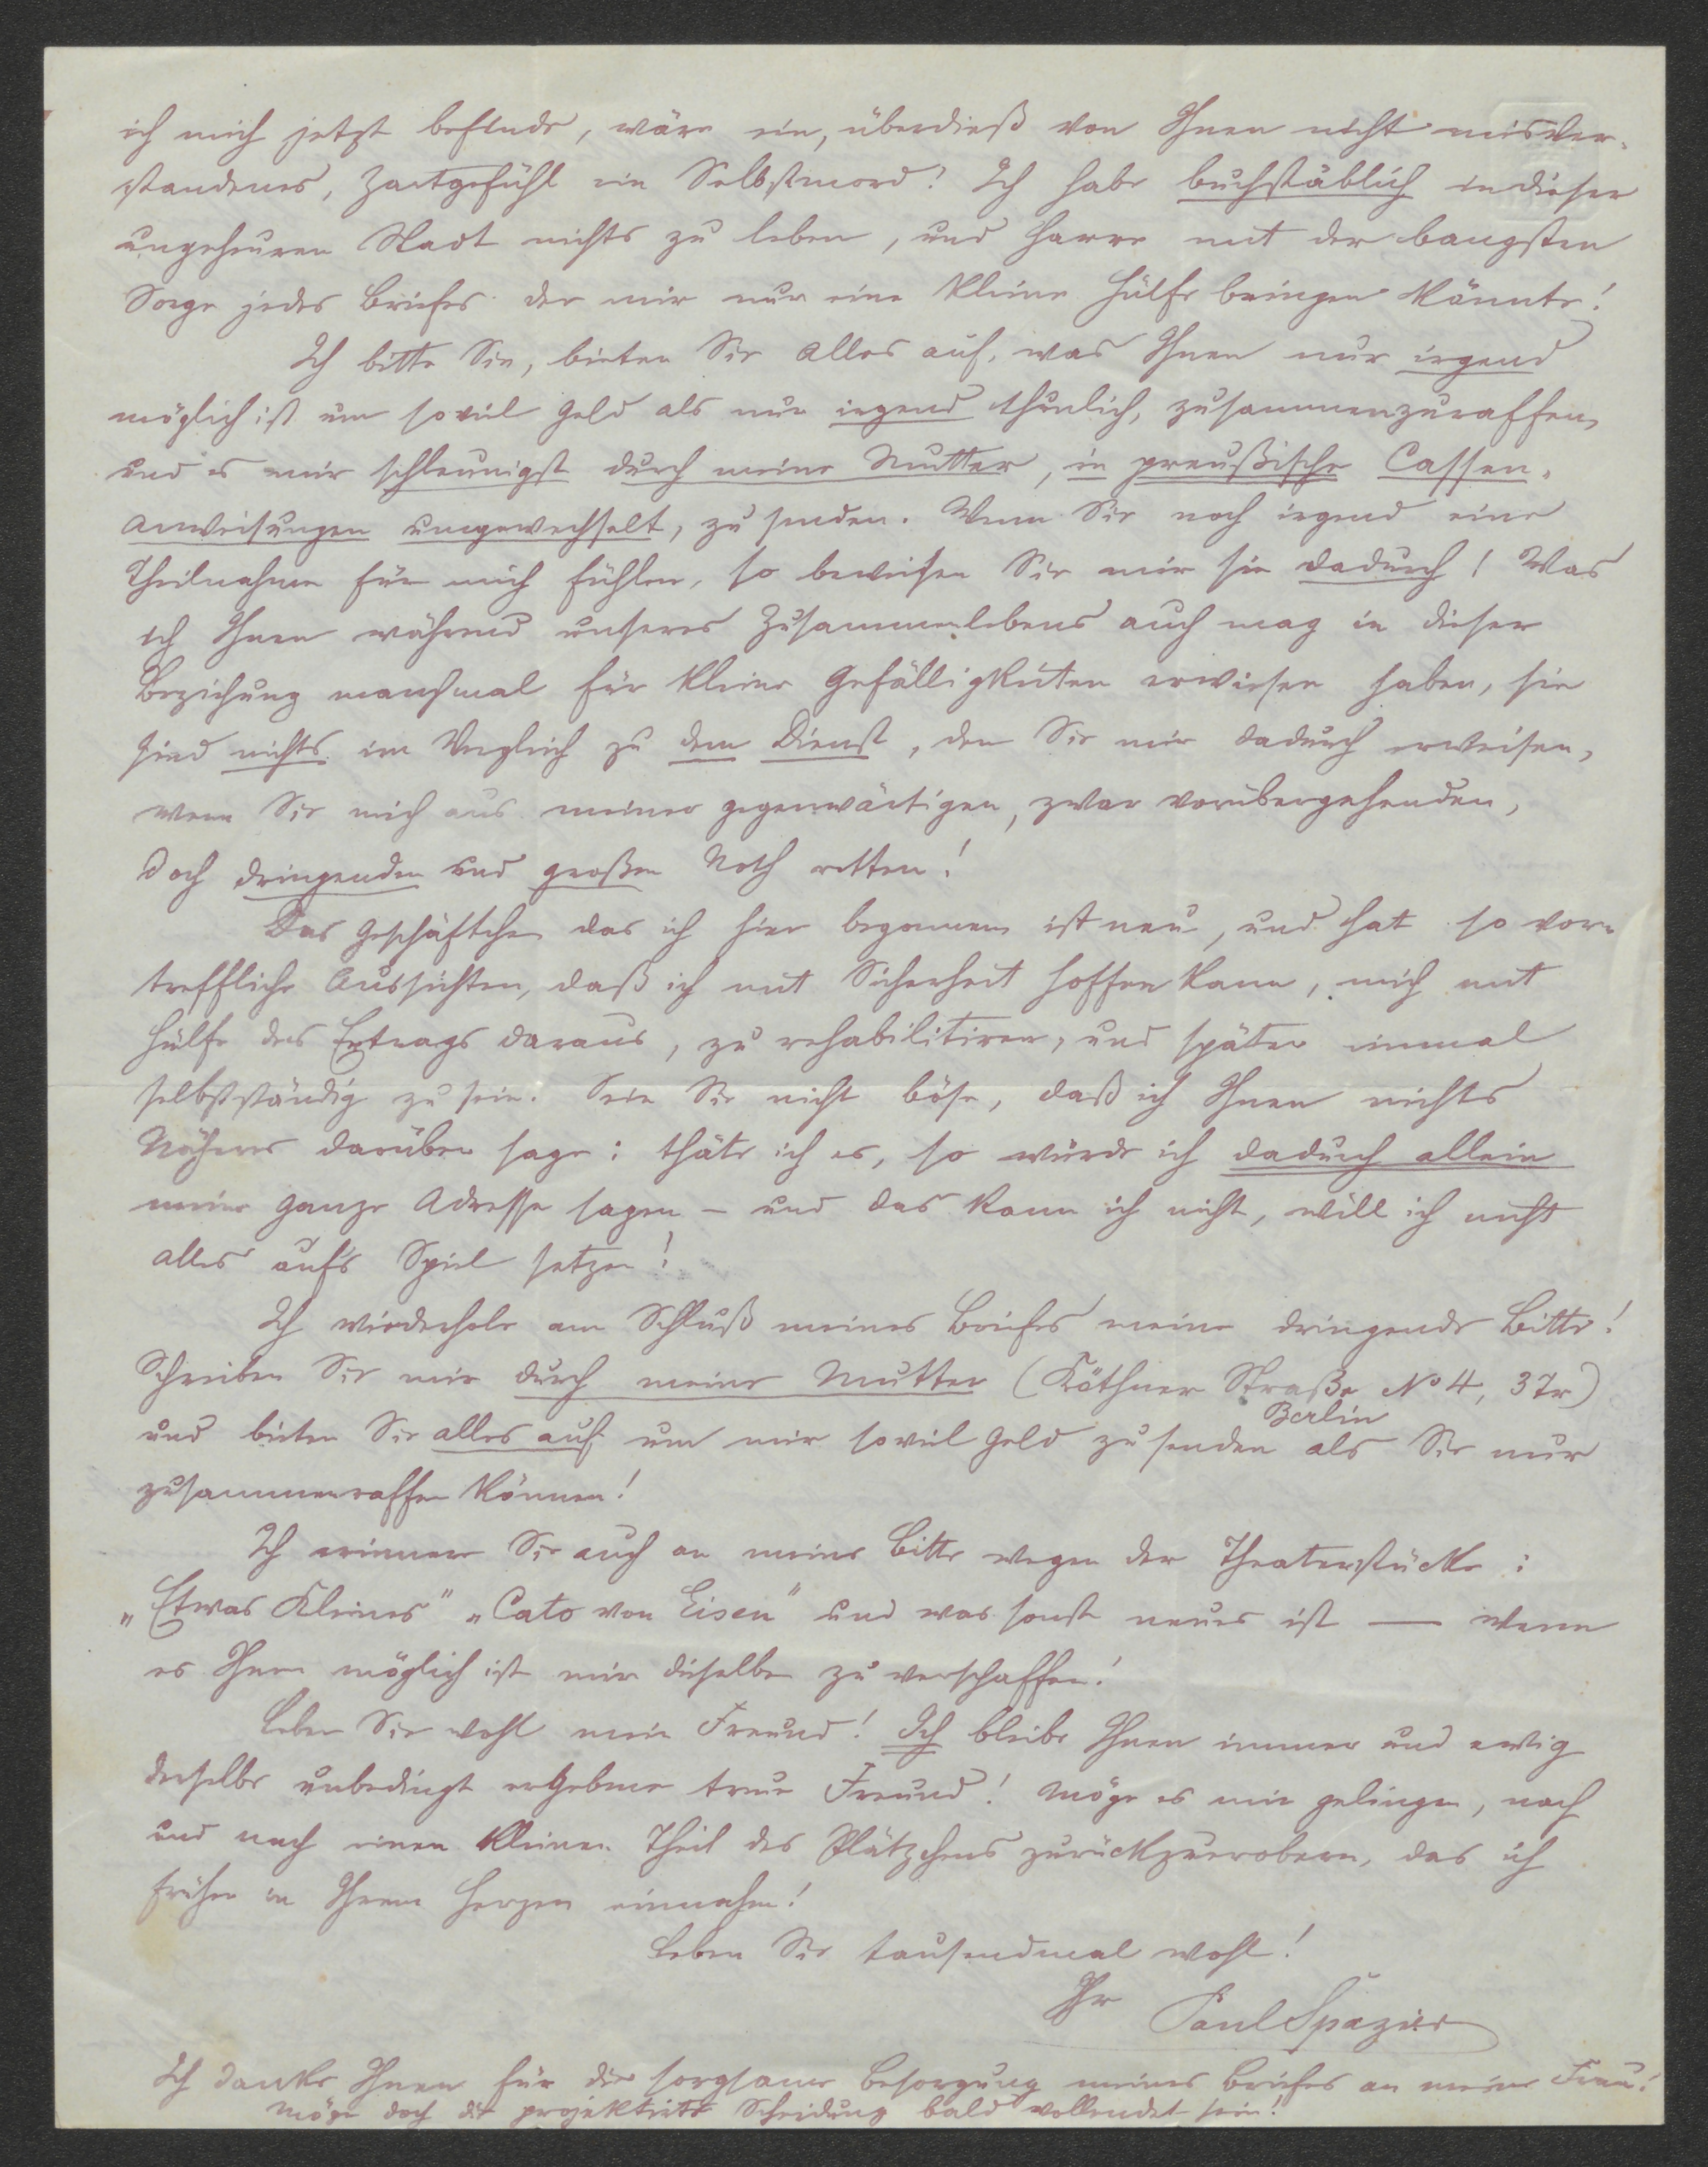 ich mich jetzt befinde, wäre ein, überdieß von Ihnen nicht misver-
standenes, Zartgefühl ein Selbstmord! Ich habe buchstäblich in dieser
ungeheuren Stadt nichts zu leben, und harre mit der bangsten
Sorge jedes Briefes der mir nur eine kleine Hülfe bringen könnte!
Ich bitte Sie, bieten Sie alles auf, was Ihnen nur irgend
möglich ist um soviel Geld als nur irgend thunlich, zusammenzuraffen,
und es mir schleunigst durch meine Mutter, in preußische Cassen-
anweisungen umgewechselt, zu senden. Wenn Sie noch irgend eine
Theilnahme für mich fühlen, so beweisen Sie mir sie dadurch! Was
ich Ihnen während unseres Zusammenlebens auch mag in dieser
Beziehung manchmal für kleine Gefälligkeiten erwiesen haben, sie
sind nichts im Vergleich zu dem Dienst, den Sie mir dadurch erweisen,
wenn Sie mich aus meiner gegenwärtigen, zwar vorübergehenden,
doch dringenden und großen Noth retten!
Das Geschäftchen das ich hier begonnen ist neu, und hat so vor-
treffliche Aussichten, daß ich mit Sicherheit hoffen kann, mich mit
Hülfe des Ertrags daraus, zu rehabilitiren, und später einmal
selbstständig zu sein. Sein Sie nicht böse, daß ich Ihnen nichts
Näheres darüber sage: thäte ich es, so würde ich dadurch allein
meine ganze Adresse sagen – und das kann ich nicht, will ich nicht
alles auf's Spiel setzen!
Ich wiederhole am Schluß meines Briefes meine dringende Bitte!
Schreiben Sie mir durch meine Mutter (Köthner Straße No 4, 3 Tr)
Berlin
und bieten Sie alles auf um mir soviel Geld zu senden als Sie nur
zusammenraffen können!
Ich erinnere Sie auch an meine Bitte wegen der Theaterstücke:
„Etwas Kleines" „Cato von Eisen" und was sonst neues ist — wenn
es Ihnen möglich ist mir dieselben zu verschaffen!
Leben Sie wohl mein Freund! Ich bleibe Ihnen immer und ewig
derselbe unbedingt ergebene treue Freund! Möge es mir gelingen, nach
und nach einen kleinen Theil des Plätzchens zurückzuerobern, das ich
früher in Ihrem Herzen einnahm!
Leben Sie tausendmal wohl!
Ihr Paul Spazier
Ich danke Ihnen für die sorgsame Besorgung meines Briefes an meine Frau!
Möge doch die projektirte Scheidung bald vollendet sein!